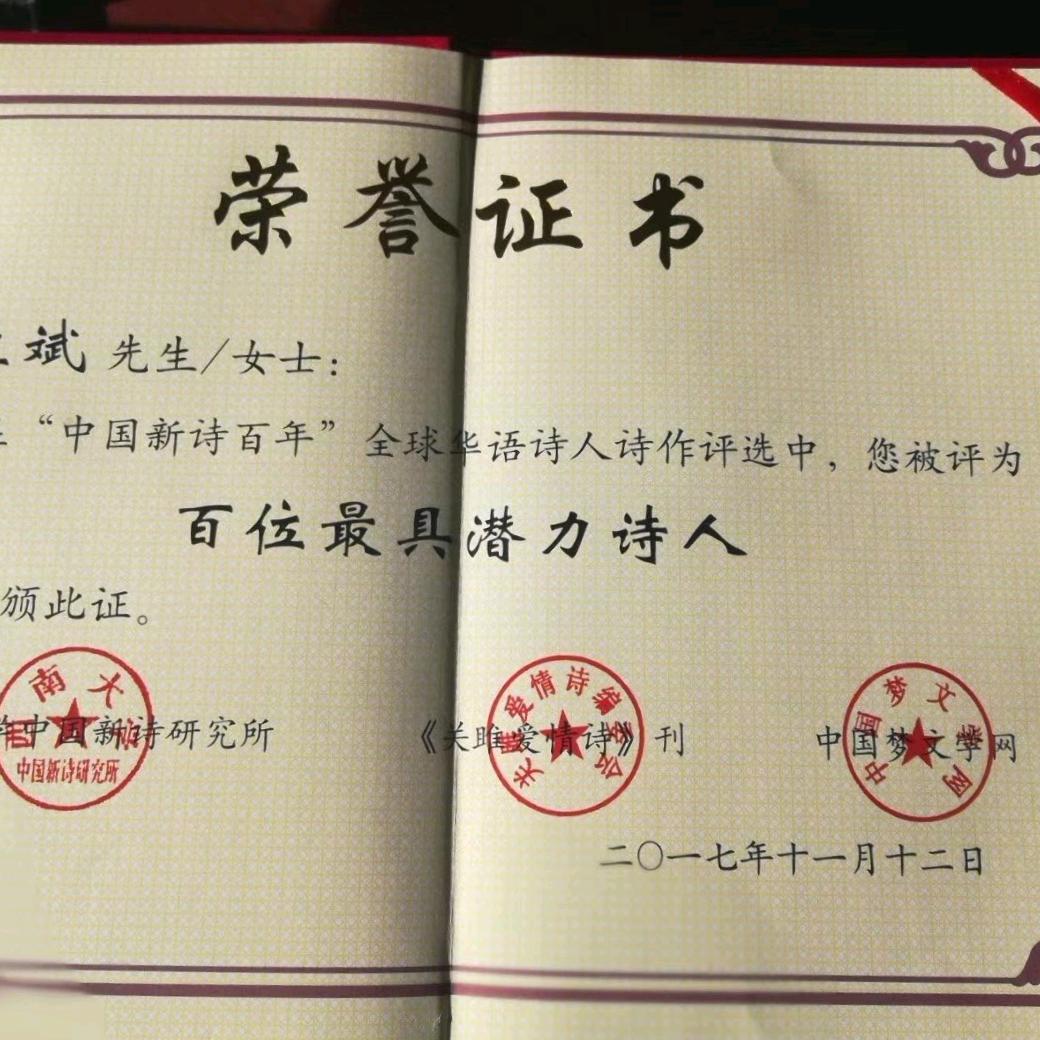 荣誉证书
斌 先生/女士：
“中国新诗百年”全球华语诗人诗作评选中，您被评为
百位最具潜力诗人
颁此证。
中国新诗研究所 《关雎爱情诗》刊 中国梦文学网
西南大学
中国新诗研究所
关雎爱情诗编委会
中国梦文学网
二〇一七年十一月十二日